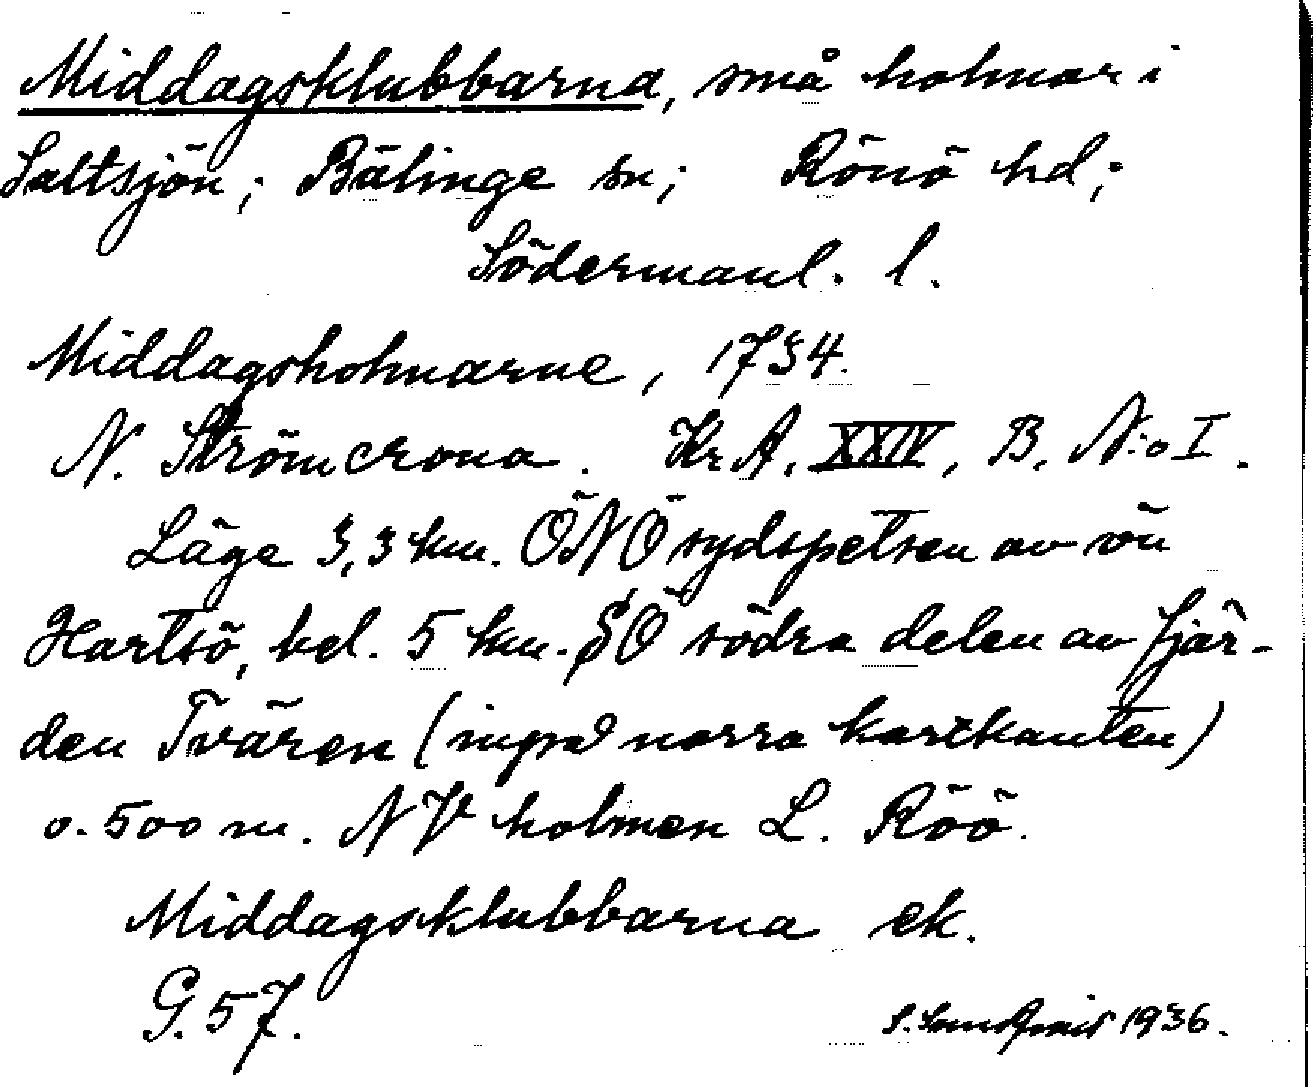 Middagsklubbarna, små holmar i
Saltsjön; Bälinge sn; Rönö hd;
Södermanl. l.
Middagsholmarne, 1734.
N. Strömcrona. Kr. A. XXIV, B. N:o I.
Läge 3,3 km. ÖNÖ sydspetsen av ön
Hartsö, bel. 5 km. SÖ södra delen av fjär-
den Tvären (invid norra kartkanten)
o. 500 m. NV holmen L. Röö.
Middagsklubbarna ek.
G. 57.
1936.